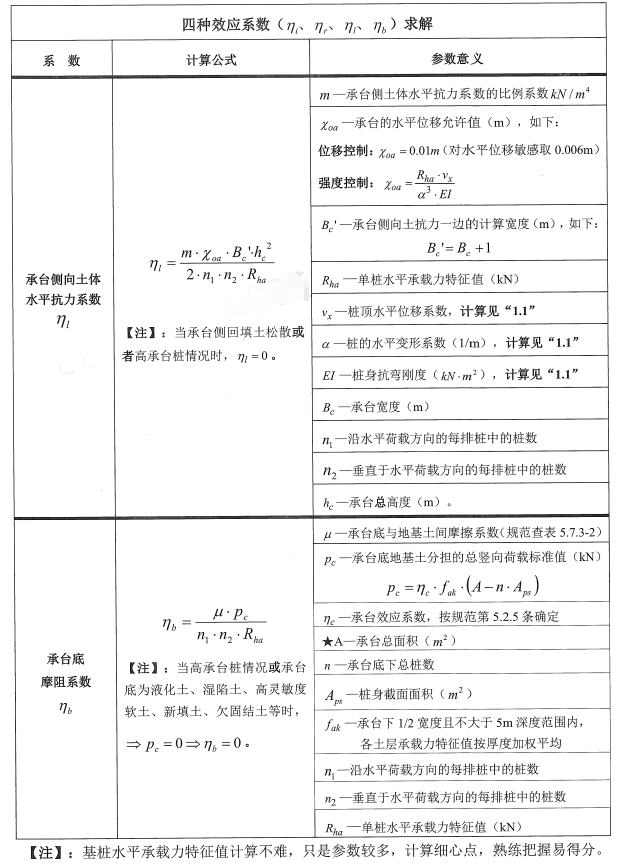 四种效应系数（ηi、ηr、ηl、ηb）求解
系 数 计算公式 参数意义
承台侧向土体
水平抗力系数
ηl
ηl = m·χoa·Bc'·hc² / 2·n1·n2·Rha
【注】：当承台侧回填土松散或
者高承台桩情况时，ηl = 0。
m —承台侧土体水平抗力系数的比例系数 kN / m⁴
χoa —承台的水平位移允许值（m），如下：
位移控制：χoa = 0.01m（对水平位移敏感取 0.006m）
强度控制：χoa = Rha·vx / α³·EI
Bc' —承台侧向土抗力一边的计算宽度（m），如下：
Bc' = Bc +1
Rha —单桩水平承载力特征值（kN）
vx —桩顶水平位移系数，计算见“1.1”
α —桩的水平变形系数（1/m），计算见“1.1”
EI —桩身抗弯刚度（kN·m²），计算见“1.1”
Bc —承台宽度（m）
n1 —沿水平荷载方向的每排桩中的桩数
n2 —垂直于水平荷载方向的每排桩中的桩数
hc —承台总高度（m）。
承台底
摩阻系数
ηb
ηb = μ·pc / n1·n2·Rha
【注】：当高承台桩情况或承台
底为液化土、湿陷土、高灵敏度
软土、新填土、欠固结土等时，
⇒ pc = 0 ⇒ ηb = 0。
μ —承台底与地基土间摩擦系数（规范查表 5.7.3-2）
pc —承台底地基土分担的总竖向荷载标准值（kN）
pc = ηc·fak·(A−n·Aps)
ηc —承台效应系数，按规范第 5.2.5 条确定
★A—承台总面积（m²）
n —承台底下总桩数
Aps —桩身截面面积（m²）
fak —承台下 1/2 宽度且不大于 5m 深度范围内，
各土层承载力特征值按厚度加权平均
n1 —沿水平荷载方向的每排桩中的桩数
n2 —垂直于水平荷载方向的每排桩中的桩数
Rha —单桩水平承载力特征值（kN）
【注】：基桩水平承载力特征值计算不难，只是参数较多，计算细心点，熟练把握易得分。